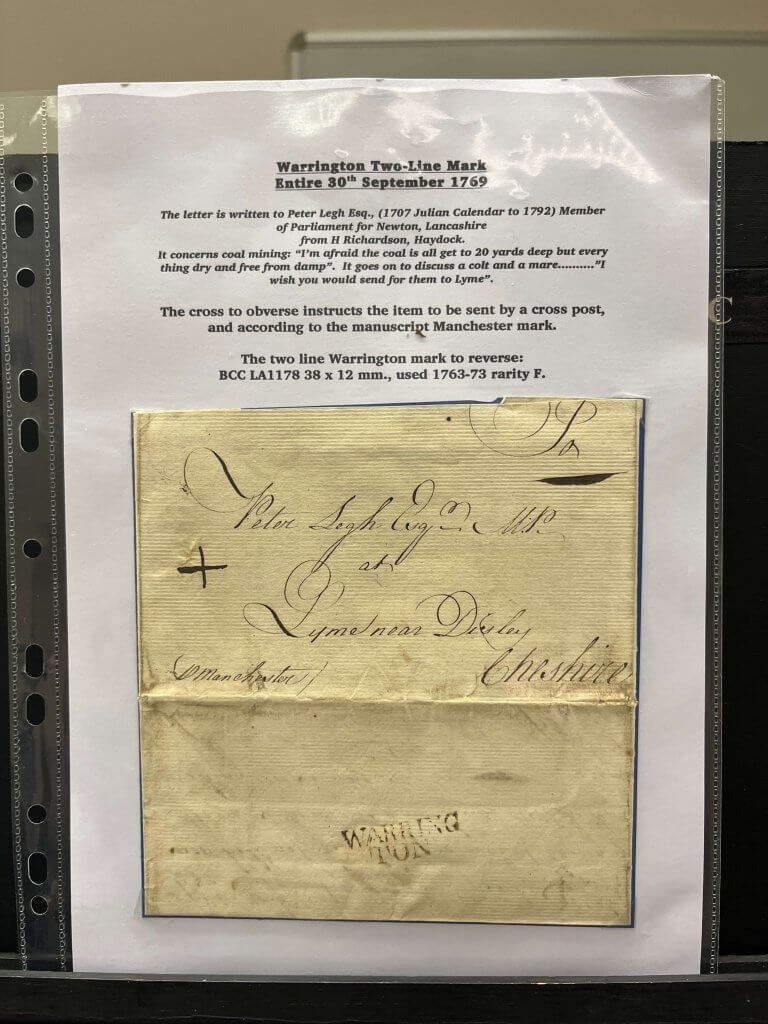 Warrington Two-Line Mark
Entire 30th September 1769
The letter is written to Peter Legh Esq., (1707 Julian Calendar to 1792) Member
of Parliament for Newton, Lancashire
from H Richardson, Haydock.
It concerns coal mining: “I'm afraid the coal is all get to 20 yards deep but every
thing dry and free from damp”. It goes on to discuss a colt and a mare..........”I
wish you would send for them to Lyme”.
The cross to obverse instructs the item to be sent by a cross post,
and according to the manuscript Manchester mark.
The two line Warrington mark to reverse:
BCC LA1178 38 x 12 mm., used 1763-73 rarity F.
To
Peter Legh Esqr. MP.
at
Lyme near Disley
Manchester
Cheshire
WARRING
TON
C